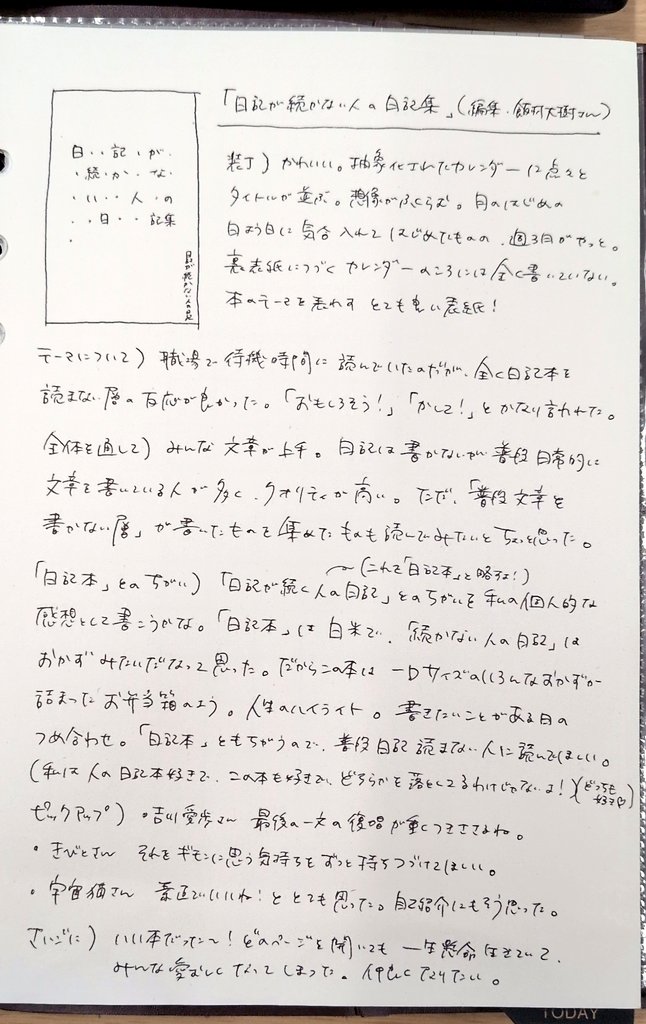 「日記が続かない人の日記集」(編集・飯村大樹さん)
日・・記・が・
・続・か・な・
・い・・人・の
・・日・・記集
・
日記が続かない人の日記
装丁) かわいい。抽象化されたカレンダーに点々と
タイトルが並ぶ。想像がふくらむ。月のはじめの
日よう日に気合入れてはじめたものの、週3日がやっと。
裏表紙につづくカレンダーのころには全く書いていない。
本のテーマを表わす とても良い表紙!
テーマについて) 職場で待機時間に読んでいたのだが、全く日記本を
読まない層の反応が良かった。「おもしろそう!」「かして!」とかなり言われた。
全体を通して) みんな文章が上手。日記は書かないが普段日常的に
文章を書いている人が多く、クオリティが高い。ただ、「普段文章を
書かない層」が書いたものを集めたものも読んでみたいとちょっと思った。
(これを「日記本」と略すよ!)
「日記本」とのちがい) 「日記が続く人の日記」とのちがいを私の個人的な
感想として書こうかな。「日記本」は白米で、「続かない人の日記」は
おかずみたいだなって思った。だからこの本は 一口サイズのいろんなおかずが
詰まったお弁当箱のよう。人生のハイライト。書きたいことがある日の
つめ合わせ。「日記本」ともちがうので、普段日記読まない人に読んでほしい。
(私は人の日記本好きで、この本も好きで、どちらかを落としてるわけじゃないよ!)(どっちも好き♡)
ピックアップ) ・吉川愛歩さん 最後の一文の復唱が重くつきささるね。
・きびとさん それをギモンに思う気持ちをずっと持ちつづけてほしい。
・宇宙猫さん 素直でいいね!ととても思った。自己紹介にもそう思った。
さいごに) いい本だった〜!どのページを開いても 一生懸命生きていて、
みんな愛おしくなってしまった。仲良くなりたい。
TODAY